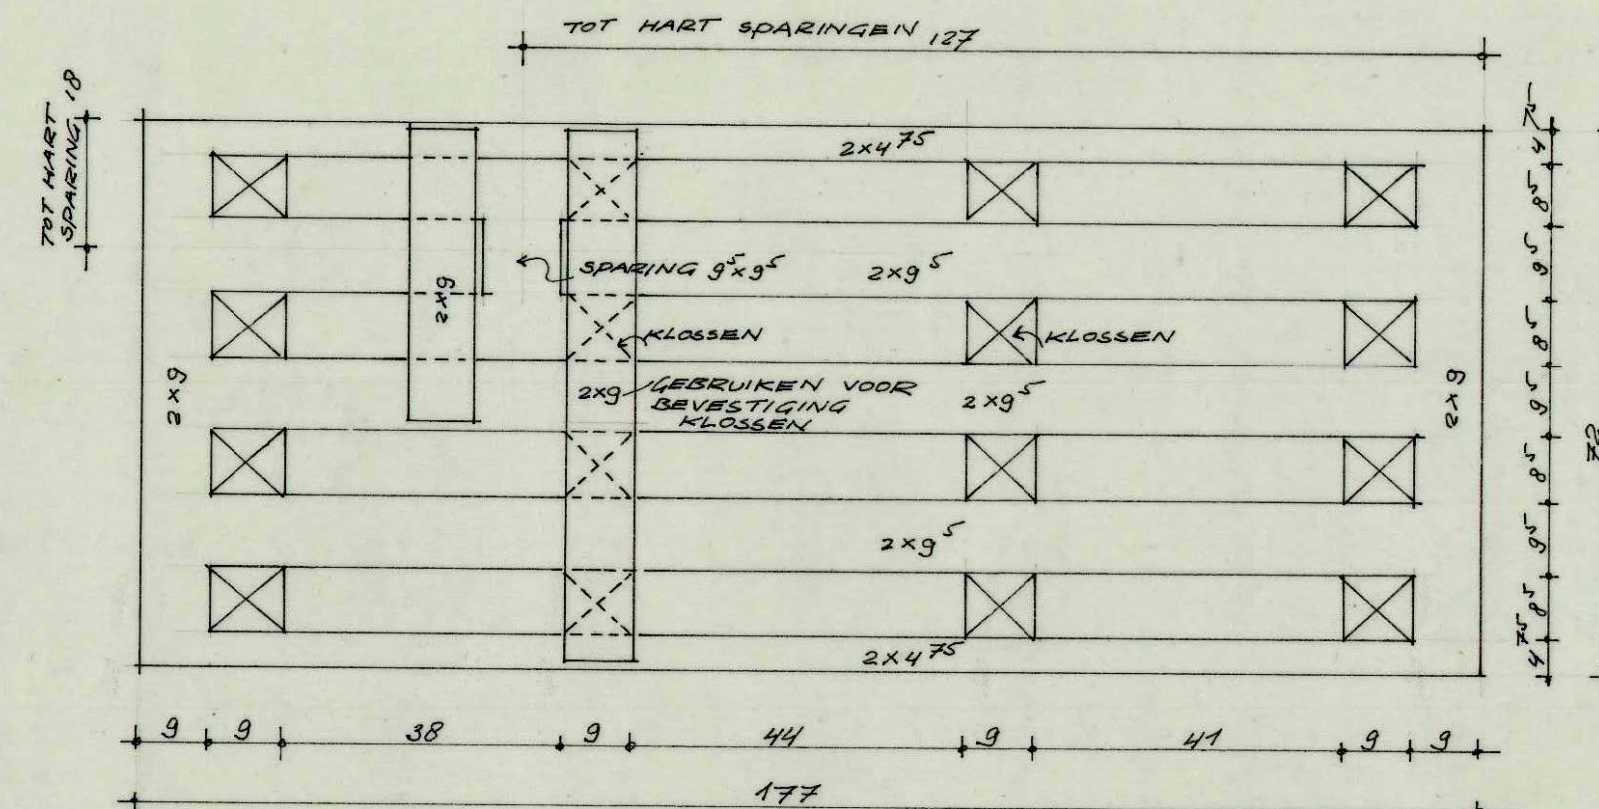 TOT HART SPARINGEN 127
TOT HART
SPARING 18
2x4 75
SPARING 9 5 x 9 5
2x9 5
2x9
KLOSSEN
KLOSSEN
2x9
2x9 GEBRUIKEN VOOR
BEVESTIGING
KLOSSEN
2x9 5
2x9
2x9 5
2x4 75
4 75
8 5
9 5
8 5
9 5
8 5
9 5
8 5
4 75
72
9 9 38 9 44 9 41 9 9
177